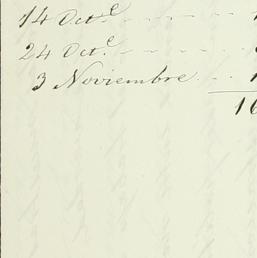 14 Oct.e
24 Oct.e
3 Noviembre
16